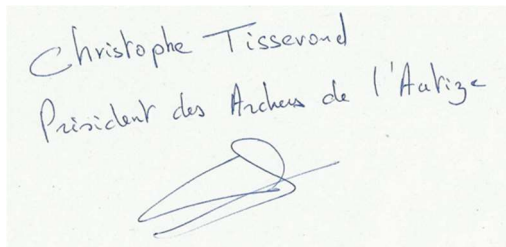 Christophe Tisserond
Président des Archers de l'Autize